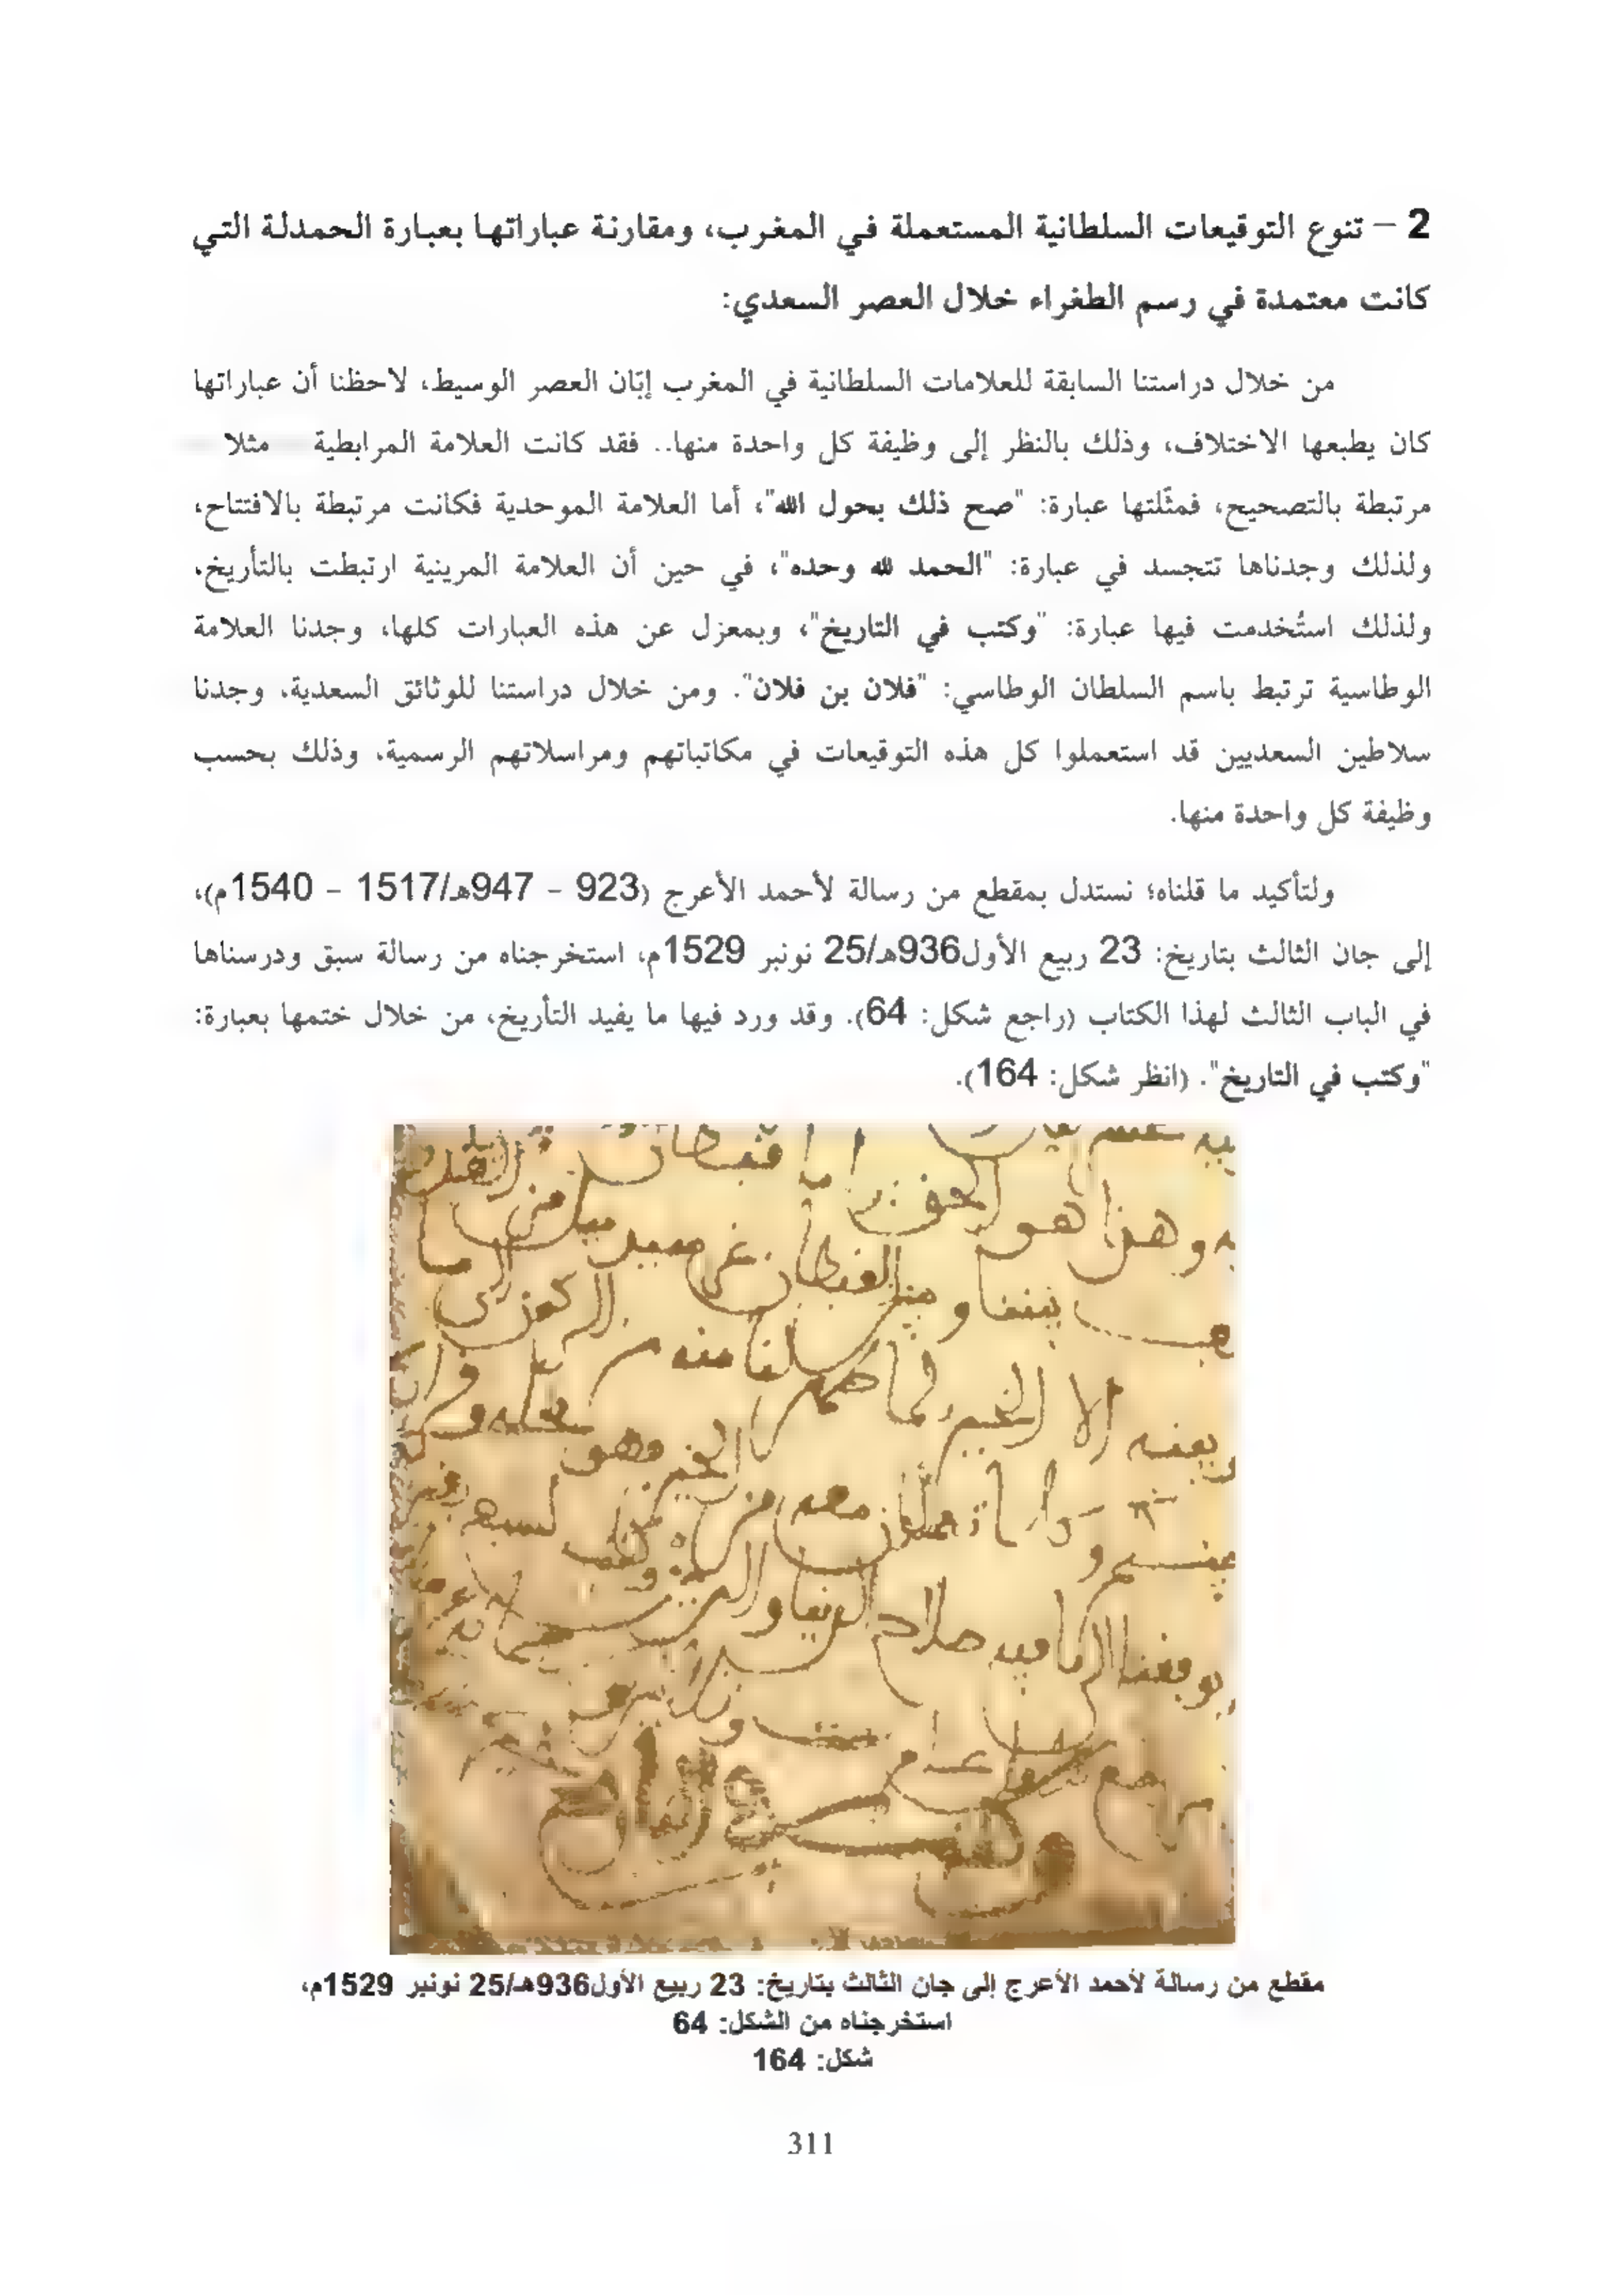 2 – تنوع التوقيعات السلطانية المستعملة في المغرب، ومقارنة عباراتها بعبارة الحمدلة التي
كانت معتمدة في رسم الطغراء خلال العصر السعدي:
من خلال دراستنا السابقة للعلامات السلطانية في المغرب إبّان العصر الوسيط، لاحظنا أن عباراتها
كان يطبعها الاختلاف، وذلك بالنظر إلى وظيفة كل واحدة منها.. فقد كانت العلامة المرابطية مثلا
مرتبطة بالتصحيح، فمثّلتها عبارة: "صح ذلك بحول الله"، أما العلامة الموحدية فكانت مرتبطة بالافتتاح،
ولذلك وجدناها تتجسد في عبارة: "الحمد لله وحده"، في حين أن العلامة المرينية ارتبطت بالتأريخ،
ولذلك استُخدمت فيها عبارة: "وكتب في التاريخ"، وبمعزل عن هذه العبارات كلها، وجدنا العلامة
الوطاسية ترتبط باسم السلطان الوطاسي: "فلان بن فلان". ومن خلال دراستنا للوثائق السعدية، وجدنا
سلاطين السعديين قد استعملوا كل هذه التوقيعات في مكاتباتهم ومراسلاتهم الرسمية، وذلك بحسب
وظيفة كل واحدة منها.
ولتأكيد ما قلناه؛ نستدل بمقطع من رسالة لأحمد الأعرج (923 – 947هـ/1517 – 1540م)،
إلى جان الثالث بتاريخ: 23 ربيع الأول936هـ/25 نونبر 1529م، استخرجناه من رسالة سبق ودرسناها
في الباب الثالث لهذا الكتاب (راجع شكل: 64). وقد ورد فيها ما يفيد التأريخ، من خلال ختمها بعبارة:
"وكتب في التاريخ". (انظر شكل: 164).
وهذا هو الحق
بيننا وبين القبطان
منه
الا الخير فما
الخير وهو
معه من
يوفقنا الى ما فيه صلاح الدنيا والدين
عام
وكتب في التاريخ
مقطع من رسالة لأحمد الأعرج إلى جان الثالث بتاريخ: 23 ربيع الأول936هـ/25 نونبر 1529م،
استخرجناه من الشكل: 64
شكل: 164
311